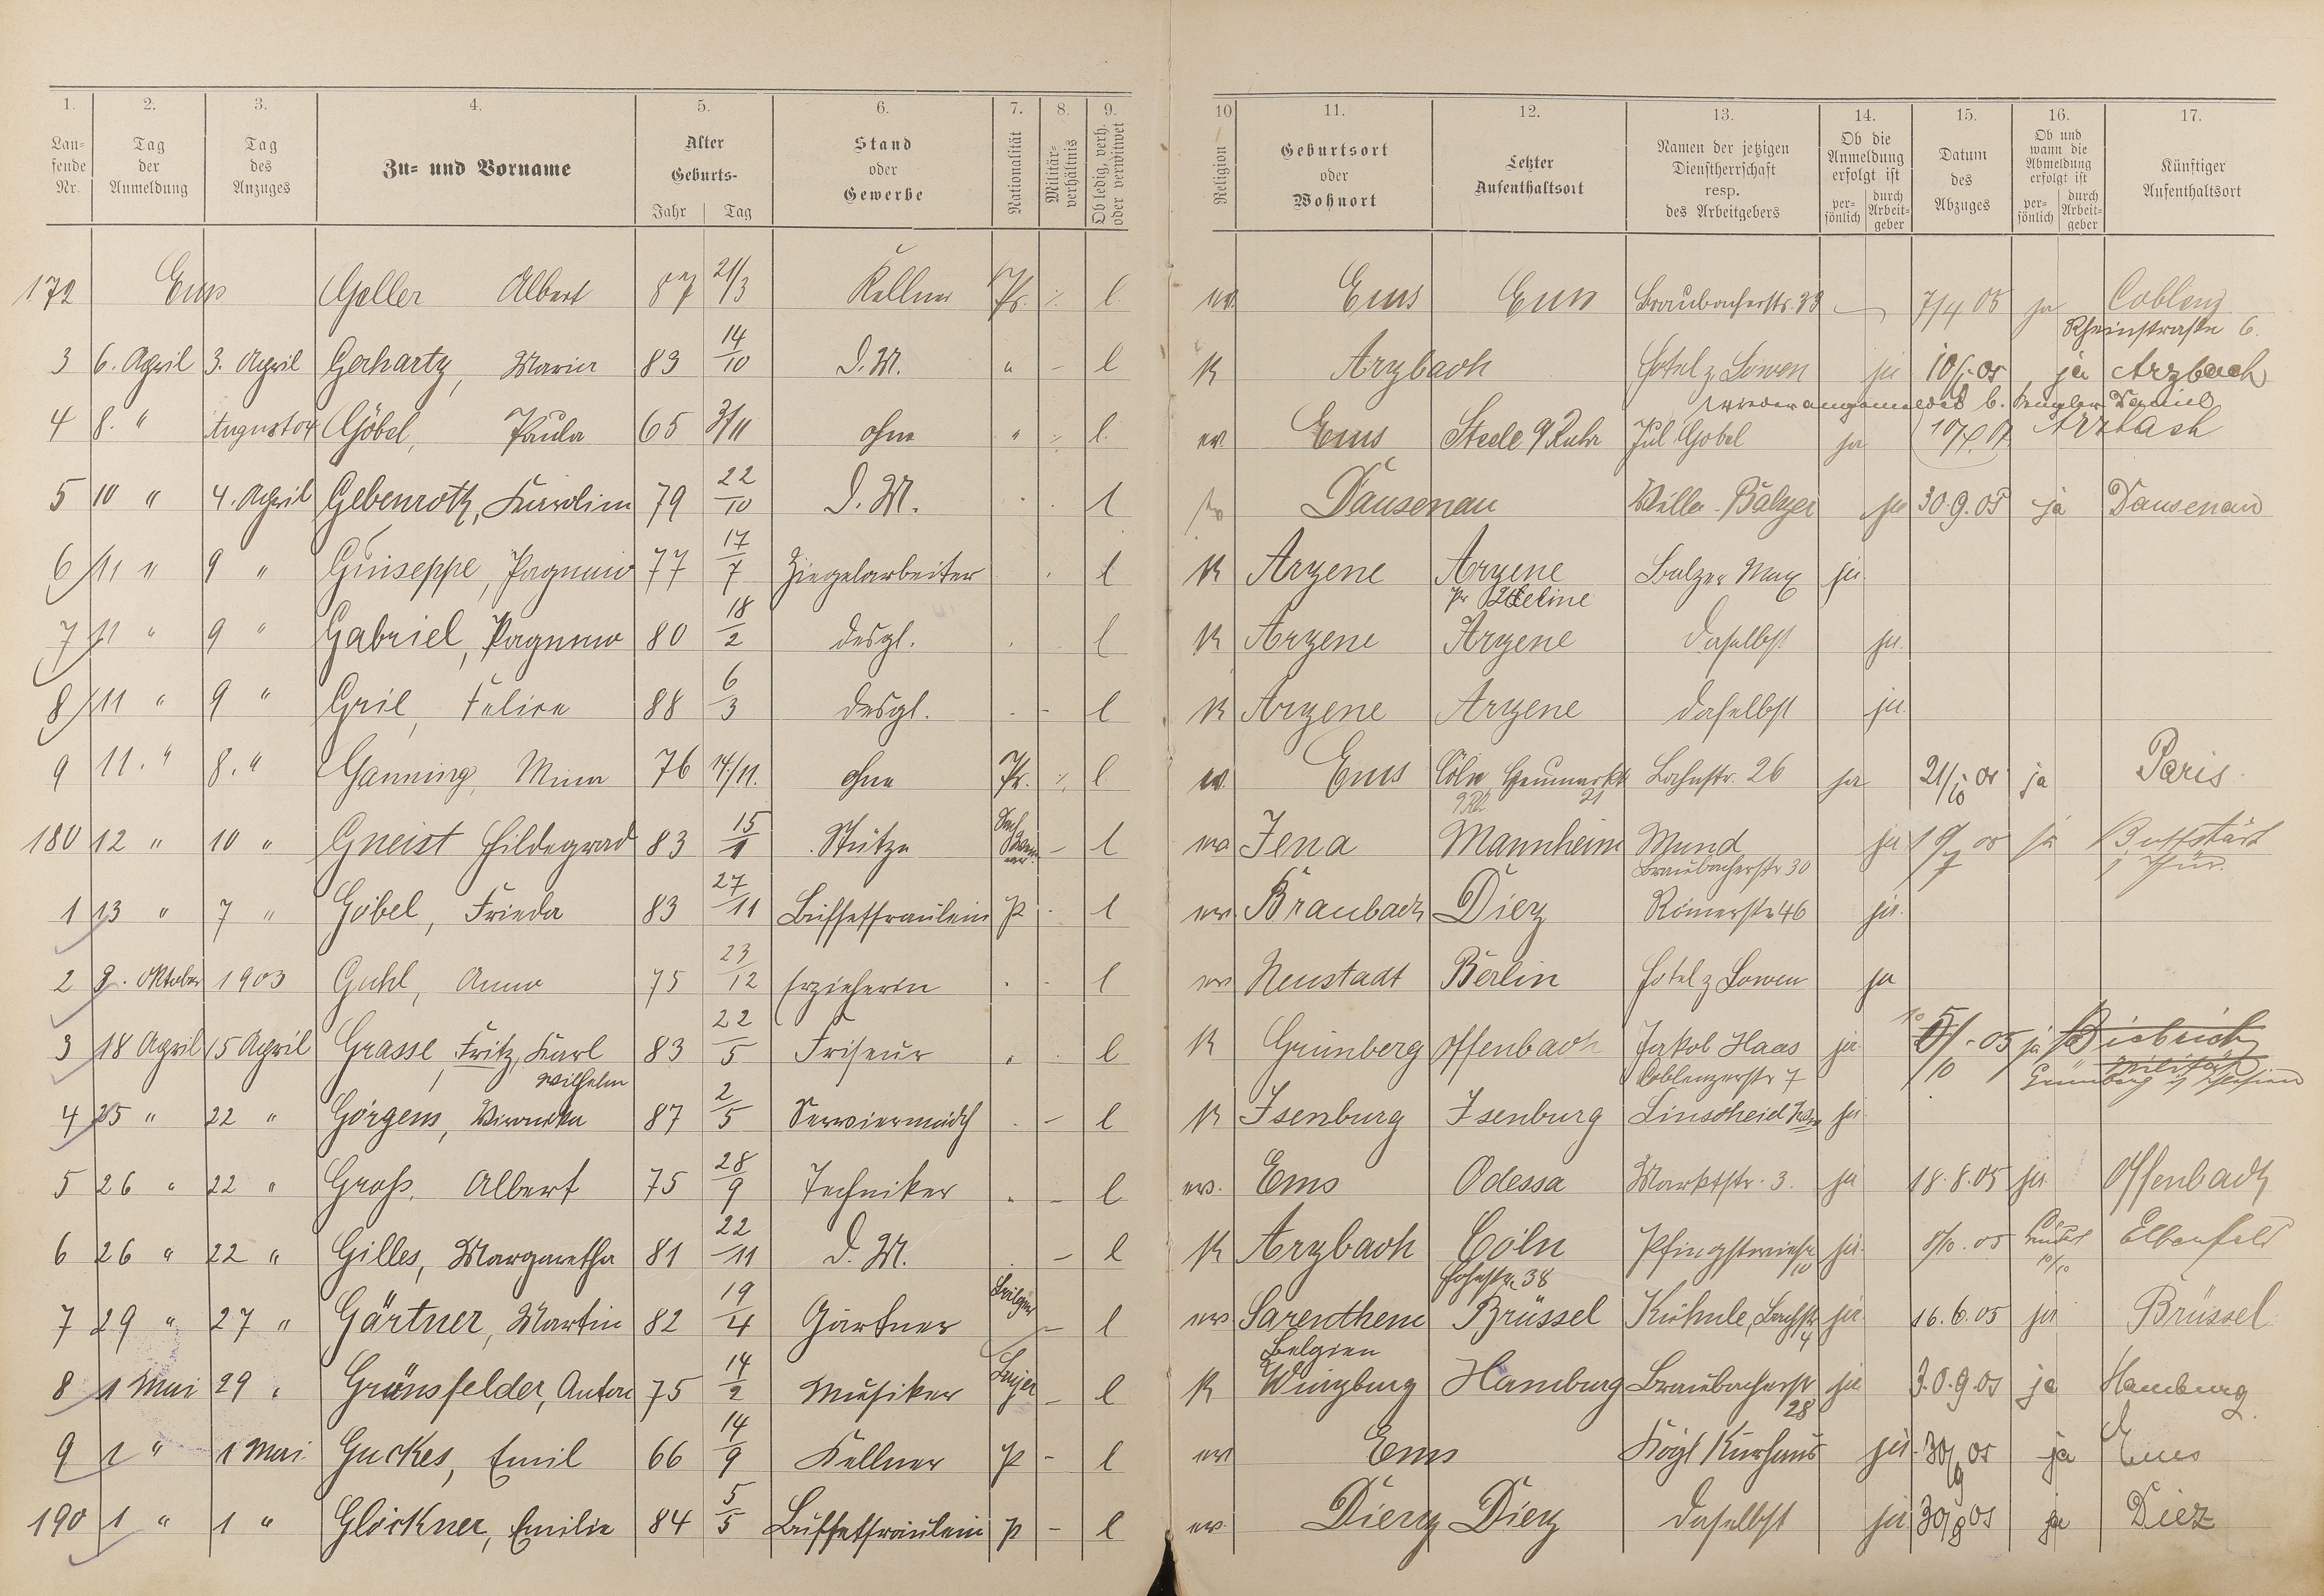 1. 2. 3. 4. 5. 6. 7. 8. 9. 10 11. 12. 13. 14. 15. 16. 17.
Lau-fende Nr. Tag der Anmeldung Tag des Anzuges Zu- und Vorname Alter Geburts- Jahr Tag Stand oder Gewerbe Nationalität Militär-verhältnis Ob ledig, verh. oder verwitwet Religion Geburtsort oder Wohnort Letzter Aufenthaltsort Namen der jetzigen Dienstherrschaft resp. des Arbeitgebers Ob die Anmeldung erfolgt ist per-sönlich durch Arbeit-geber Datum des Abzuges Ob und wann die Abmeldung erfolgt ist per-sönlich durch Arbeit-geber Künftiger Aufenthaltsort
172 Ems Geller Albert 87 21/3 Kellner Pr. ٪ l. ev. Ems Ems Braubacherstr. 33 — 7/4 05 ja Coblenz
Rheinstraße 6.
3 6. April 3. April Gerhartz, Maria 83 14/10 D. M. " – l K Arzbach Hotel z Löwen ja 10/5 05 ja Arzbach
wieder angemeldet b.
4 8. " August 04 Göbel, Paula 65 3/11 ohne " ٪ l. ev. Ems Steele a/Ruhr Jul Göbel ja Arzbach
5 10 " 4. April Gebenroth, Karolin 79 22/10 D. M. l ev Dausenau Villa Balzer ja 30.9.05 ja Dausenau
6 11 " 9 " Guiseppe, Pagnuio 77 17/7 Ziegelarbeiter l K Arzene Arzene Balzer Max ja
7 11 " 9 " Gabriel, Pagnuio 80 18/2 desgl. l K Arzene Arzene daselbst ja
8 11 " 9 " Gril, Felice 88 6/3 desgl. - l K Arzene Arzene daselbst ja
9 11. " 8. " Ganning, Mina 76 14/11. ohne Pr. ٪ l ev. Ems Cöln Heumarkt 21 Bahnstr. 26 ja 21/10 05 ja Paris
180 12 " 10 " Gneist Hildegrad 83 15/1 Stütze – l ev Jena Mannheim Mund ja ja Buttstädt
Braubacherstr 30 i/Thür.
1 13 " 7 " Göbel, Frieda 83 27/11 Büffetfräulein P - l ev. Braubach Diez Römerstr 46 ja.
2 9. Oktober 1903 Guhl, Anna 75 23/12 Erzieherin l ev Neustadt Berlin Hotel z Löwen ja
3 18 April 15 April Grasse, Fritz, Karl 83 22/5 Friseur " l K Grünberg Offenbach Jakob Haas ja 5/10 05 ja Biebrich
Wilhelm Coblenzerstr 7 Militär Grünberg i/Hessen
4 25 " 22 " Görgens, Veronika 87 2/5 Serviermädch – l K Isenburg Isenburg Linscheid ja
5 26 " 22 " Groß, Albert 75 28/9 Techniker " – l ev. Ems Odessa Marktstr. 3. ja 18.8.05 ja Offenbach
6 26 " 22 " Gilles, Margaretha 81 22/11 D. M. – l K Arzbach Cöln Pfingstwiese 10 ja 8/10. 05 10/10 Elberfeld
Hohestr. 38
7 29 " 27 " Gärtner, Martin 82 19/4 Gärtner Belgien – l ev Sarenthem Brüssel Kühnle, Bachstr 4 ja 16.6.05 ja Brüssel
Belgien
8 1 Mai 29 " Grünsfelder, Anton 75 14/2 Musiker Baijer – l K Würzburg Hamburg Braubacherstr 28 ja 30.9.05 ja Hamburg
9 1 " 1 Mai. Guckes, Emil 66 14/9 Kellner P – l ev Ems Kögl Kurhaus ja 30/9 05 ja Ems
190 1 " 1 " Glöckner, Emilie 84 5/5 Buffetfräulein P – l ev. Dierz Diez daselbst ja 30/9 05 ja Diez